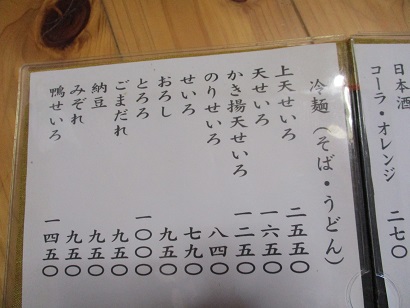 日本酒
コーラ・オレンジ 二七〇
冷麺（そば・うどん）
上天せいろ 二五五〇
天せいろ 一六五〇
かき揚天せいろ 一二五〇
のりせいろ 八四〇
せいろ 七九〇
おろし 九五〇
とろろ 一〇〇〇
ごまだれ 九五〇
納豆 九五〇
みぞれ 九五〇
鴨せいろ 一四五〇